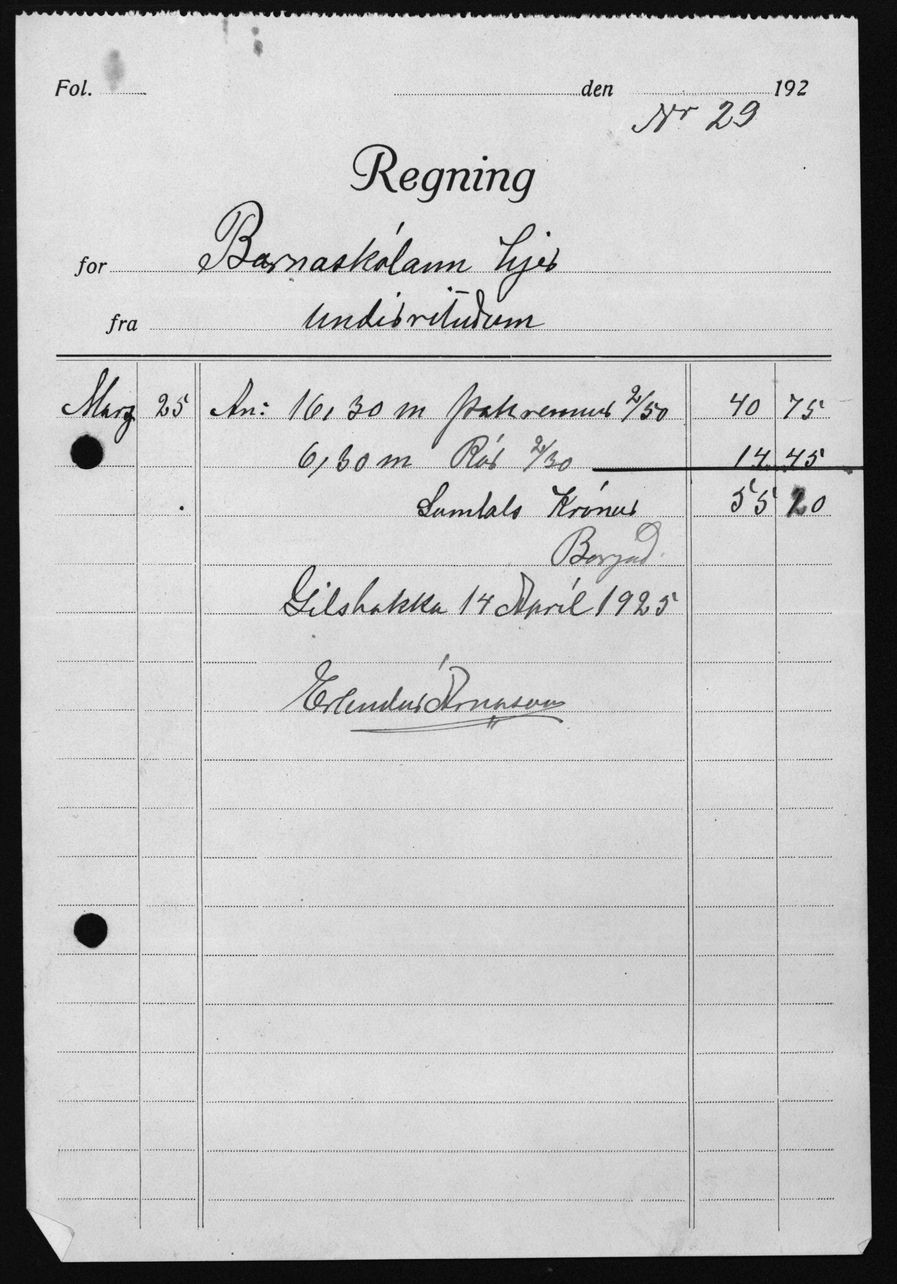 Fol. den 192
Nr 29
Regning
for Barnaskólann hjer
fra undirrituðum
Marz 25 An: 16,30 m þakrennur 2/50 40 75
6,30 m Rör 2/30 14 45
Samtals Krónur 55 20
Borgað.
Gilsbakka 14 Apríl 1925
Erlendur Árnason